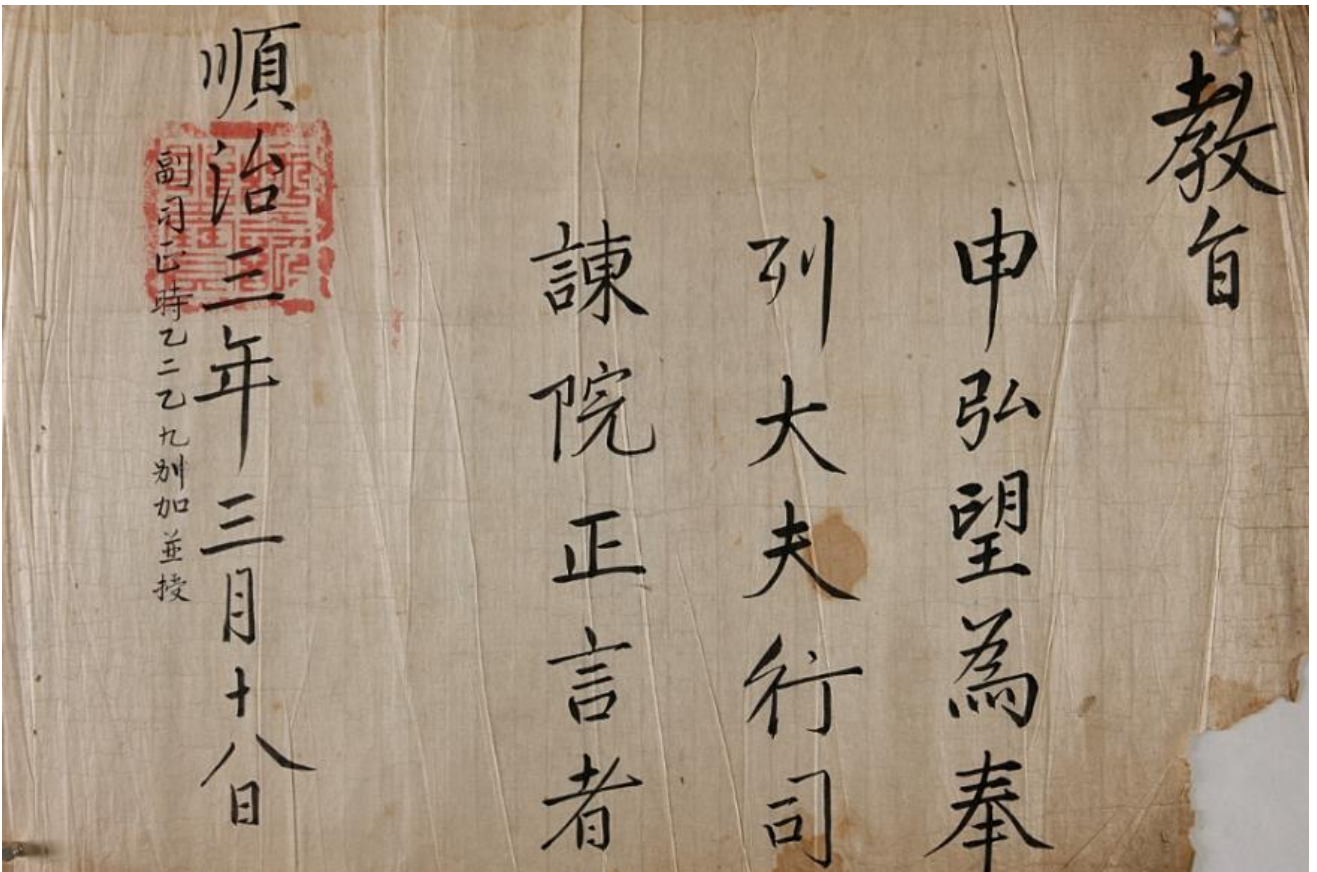 教旨
申弘望為奉
列大夫行司
諫院正言者
順治三年三月十八日
副司正時乙二乙九別加並授